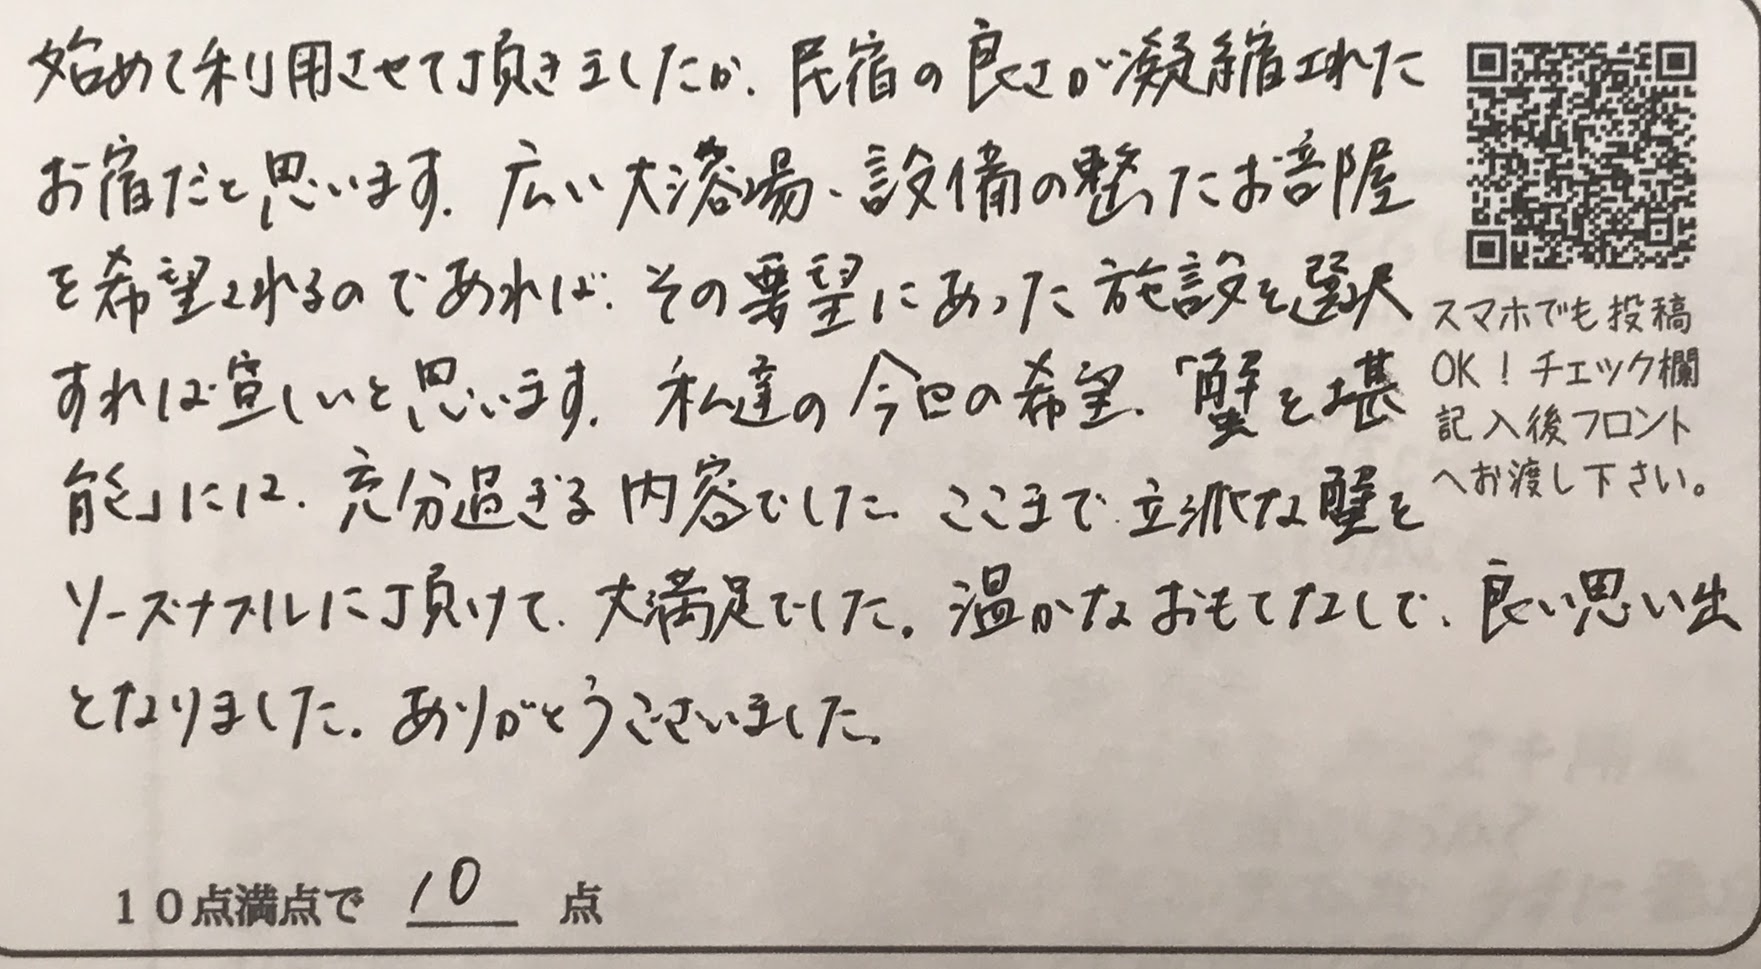 始めて利用させて頂きましたが、民宿の良さが凝縮された
お宿だと思います。広い大浴場、設備の整ったお部屋
を希望されるのであれば、その要望にあった施設を選択
すれば宜しいと思います。私達の今回の希望、「蟹を堪
能」には、充分過ぎる内容でした。ここまで立派な蟹を
リーズナブルに頂けて、大満足でした。温かなおもてなしで、良い思い出
となりました。ありがとうございました。
スマホでも投稿
OK！チェック欄
記入後フロント
へお渡し下さい。
10点満点で 10 点